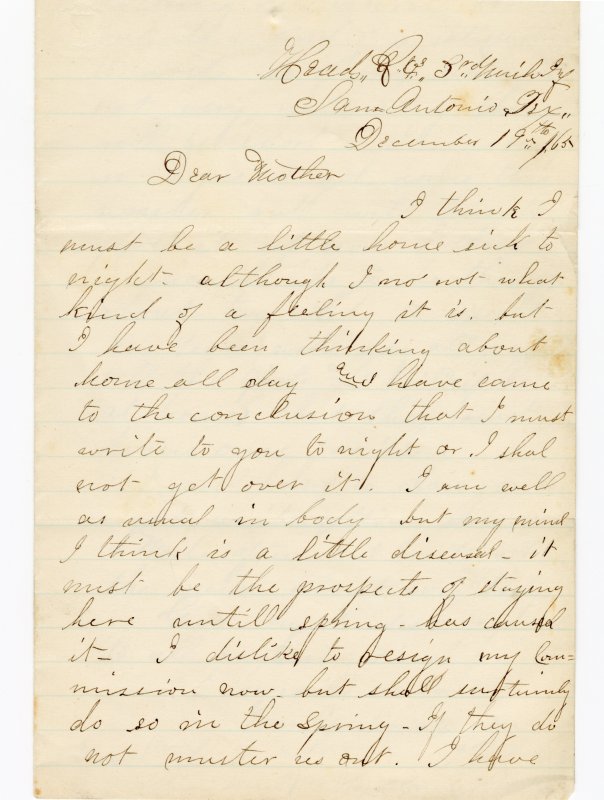 Head,, Qrs,, 3rd Mich Inf
San Antonio Tx,,
December 19th /65
Dear Mother
I think I
must be a little home sick to
night - although I no not what
kind of a feeling it is. but
I have been thinking about
home all day and have came
to the conclusion that I must
write to you to night or I shal
not get over it. I am well
as usual in body but my mind
I think is a little diseased - it
must be the prospects of staying
here untill spring - has caused
it - I dislike to resign my Com=
mission now - but shall surtainly
do so in the Spring - If they do
not muster us out. I have